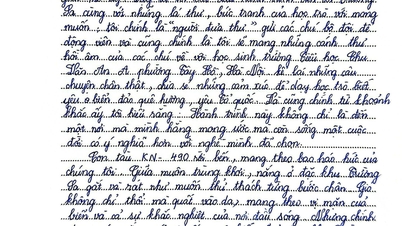 Sa cùng với những lá thư, bức tranh của học trò với mong
muốn, tôi chính là người đưa thư "gửi các chú bộ đội để
động viên và cũng chính là tôi sẽ mang những cánh thư
hồi âm của các chú về với học sinh trường Tiểu học Chu
Văn An A phường Tây Hồ, Hà Nội kể lại những câu
chuyện chân thật, chia sẻ những cảm xúc để dạy học trò biết
yêu biển đảo quê hương, yêu Tổ quốc. Và cũng chính từ khoảnh
khắc ấy tôi hiểu rằng: Hành trình này không chỉ là đến
một nơi mà mình hằng mong ước mà còn sống một cuộc
đời có ý nghĩa hơn với nghề mình đã chọn.
Con tàu KN-490 rời bến, mang theo bao háo hức của
chúng tôi. Giữa muôn trùng khơi, nắng ở đặc khu Trường
Sa gắt và rát như muốn thử thách từng bước chân. Gió
không chỉ thổi mà quất vào da, mang theo vị mặn của
biển và cả sự khắc nghiệt của nơi đầu sóng. Nhưng chính